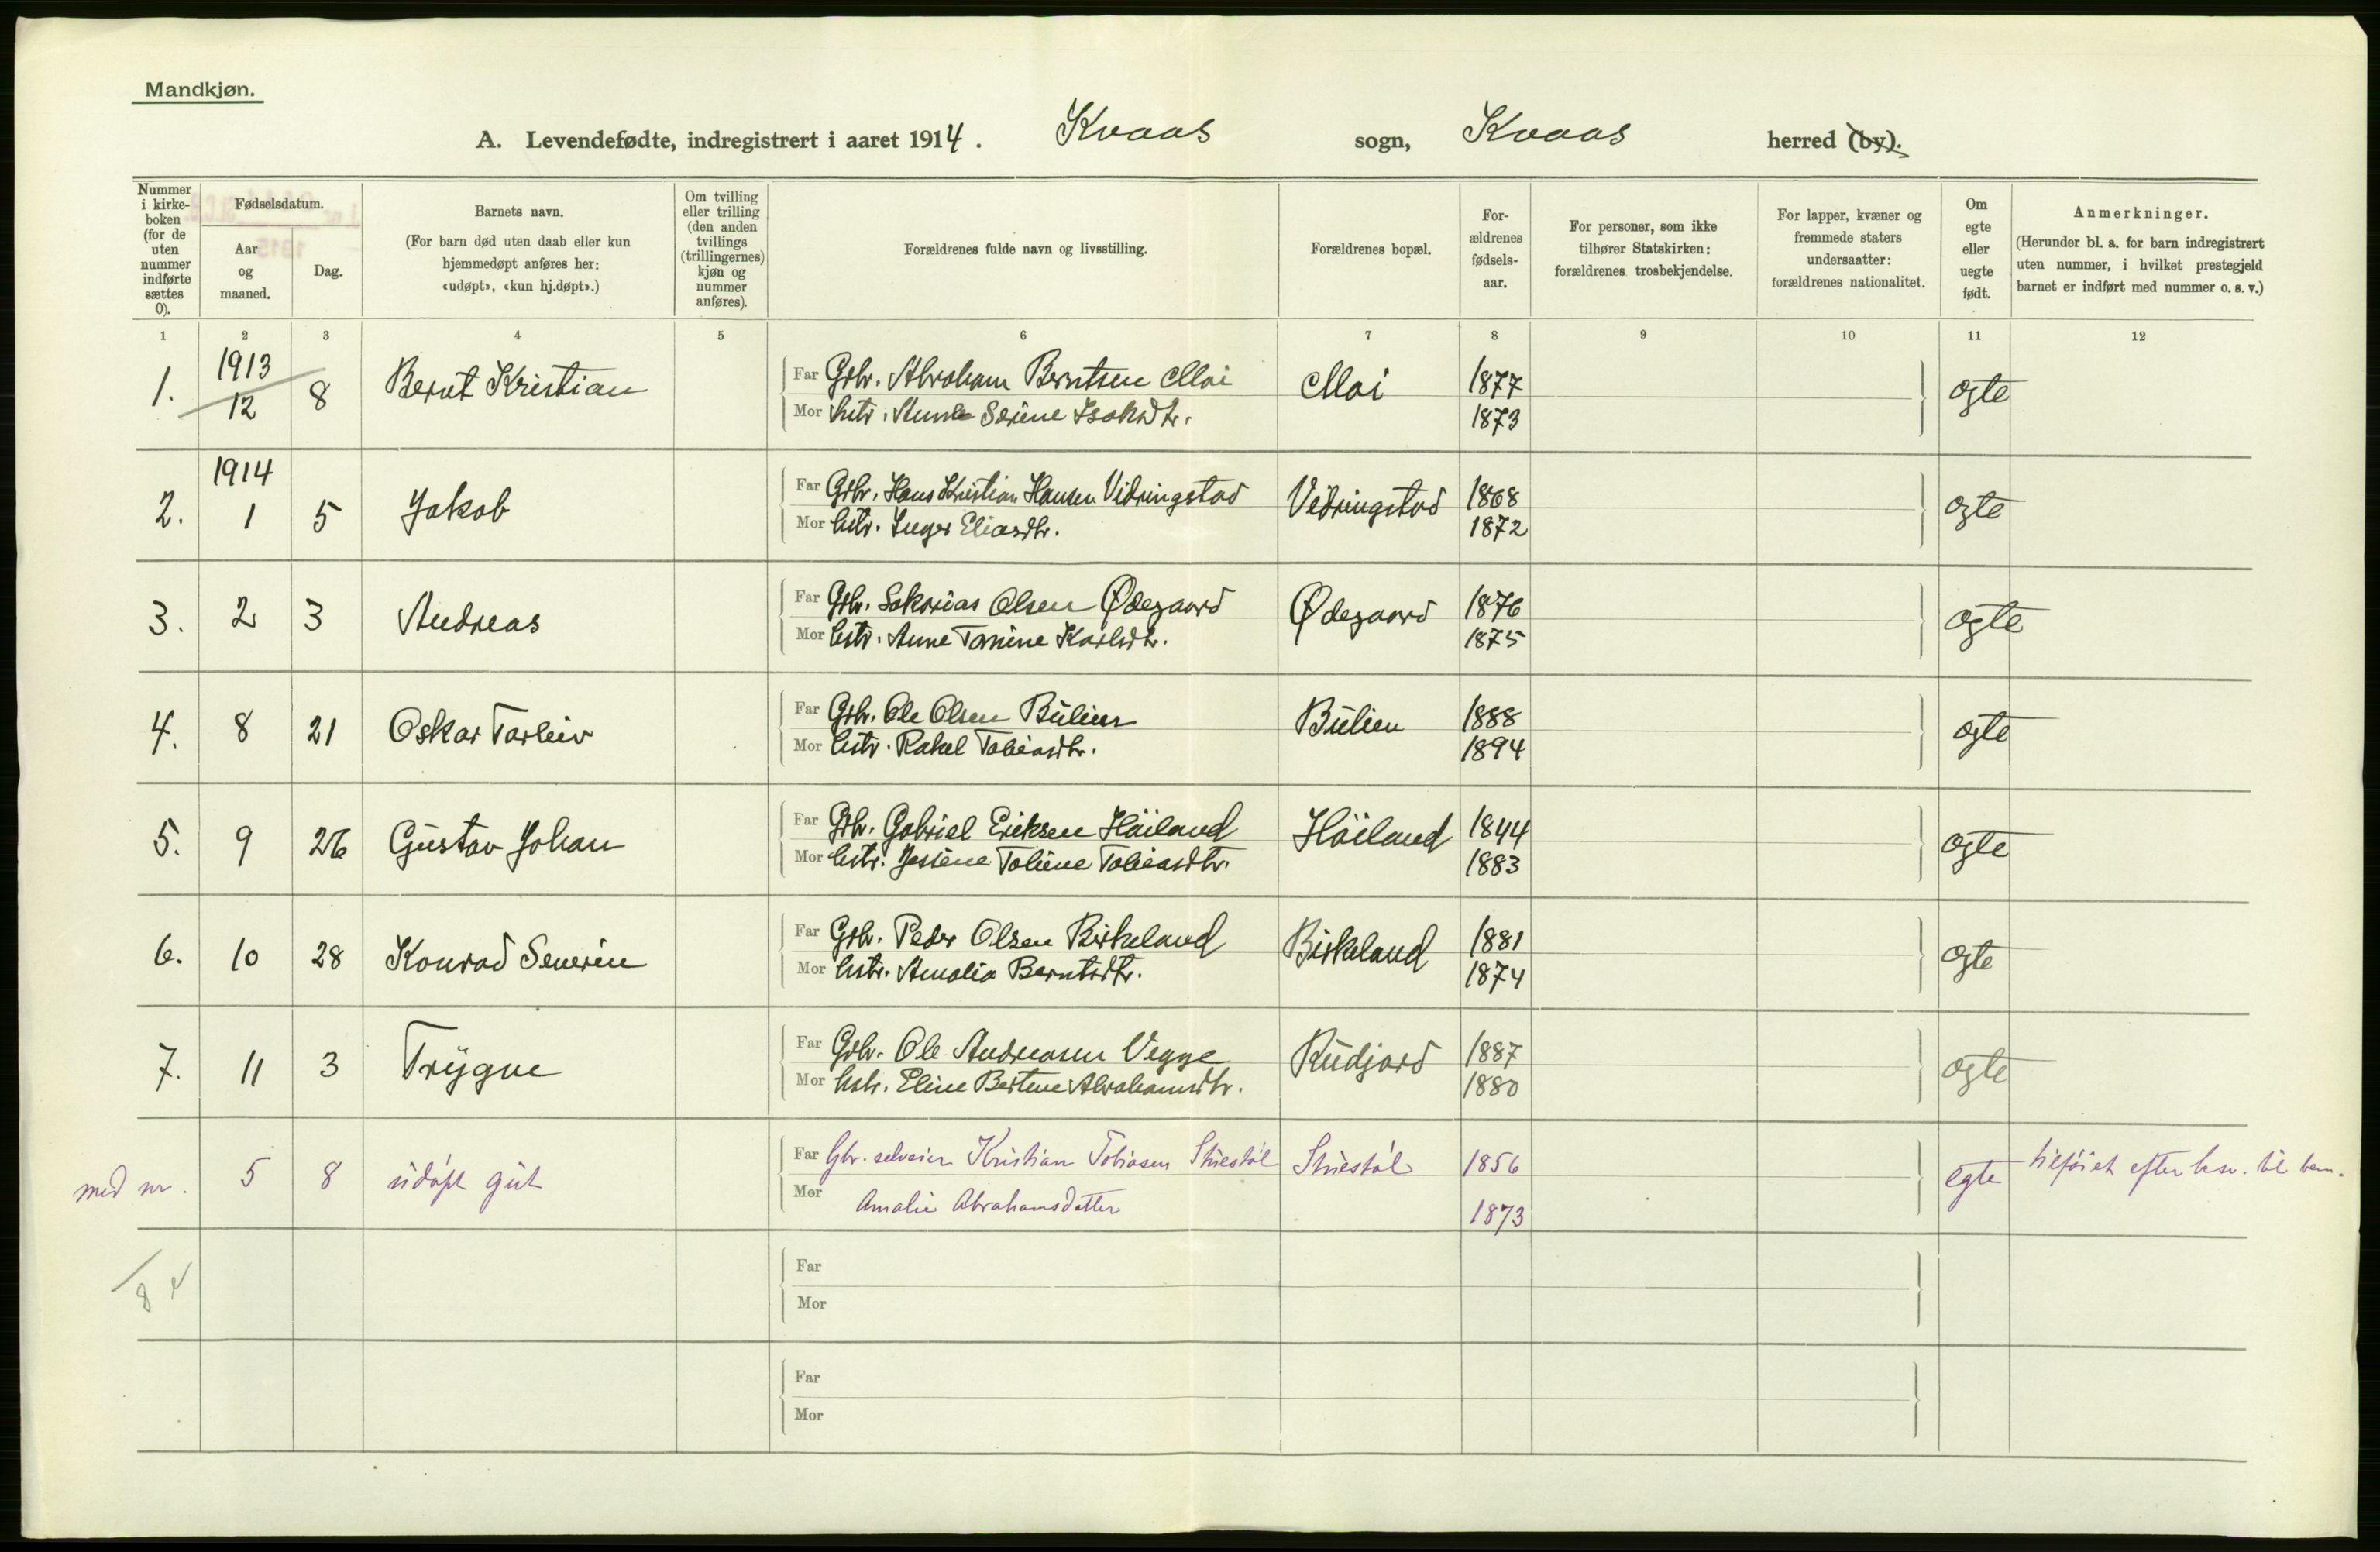 Mandkjøn.
A. Levendefødte, indregistrert i aaret 1914. Kvaas sogn, Kvaas herred (by).
Nummer i kirkeboken (for de uten nummer indførte sættes 0).
Fødselsdatum.
Aar og maaned.
Dag.
Barnets navn.
(For barn død uten daab eller kun hjemmedøpt anføres her: «udøpt», «kun hj.døpt».)
Om tvilling eller trilling (den anden tvillings (trillingernes) kjøn og nummer anføres).
Forældrenes fulde navn og livsstilling.
Forældrenes bopæl.
Forældrenes fødselsaar.
For personer, som ikke tilhører Statskirken: forældrenes trosbekjendelse.
For lapper, kvæner og fremmede staters undersaatter: forældrenes nationalitet.
Om egte eller uegte født.
Anmerkninger.
(Herunder bl. a. for barn indregistrert uten nummer, i hvilket prestegjeld barnet er indført med nummer o. s. v.)
1 2 3 4 5 6 7 8 9 10 11 12
1. 1913 12 8 Bernt Kristian Far Gbr. Abraham Berntsen Moi Moi 1877 egte
Mor hstr. Anne Serine Isaksdtr. 1873
2. 1914 1 5 Jakob Far Gbr. Hans Kristian Hansen Vidringstad Vidringstad 1868 egte
Mor hstr. Inger Eliasdtr. 1872
3. 2 3 Andreas Far Gbr. Sakarias Olsen Ødegaard Ødegaard 1876 egte
Mor hstr. Anne Tomine Karlsdtr. 1875
4. 8 21 Oskar Tarleiv Far Gbr. Ole Olsen Bulien Bulien 1888 egte
Mor hstr. Rakel Tobiasdtr. 1894
5. 9 26 Gustav Johan Far Gbr. Gabriel Eriksen Høiland Høiland 1844 egte
Mor hstr. Jessine Toline Tobiasdtr. 1883
6. 10 28 Konrad Severin Far Gbr. Peder Olsen Birkeland Birkeland 1881 egte
Mor hstr. Amalia Berntsdtr. 1874
7. 11 3 Trygve Far Gbr. Ole Andreasen Vegge Rudjord 1887 egte
Mor hstr. Eline Bertine Abrahamsdtr. 1880
med nr. 5 8 udøpt gut Far Gbr. selveier Kristian Tobiasen Stuestøl Stuestøl 1856 egte tilføiet efter
Mor Amalie Abrahamsdatter 1873
8
Far
Mor
Far
Mor